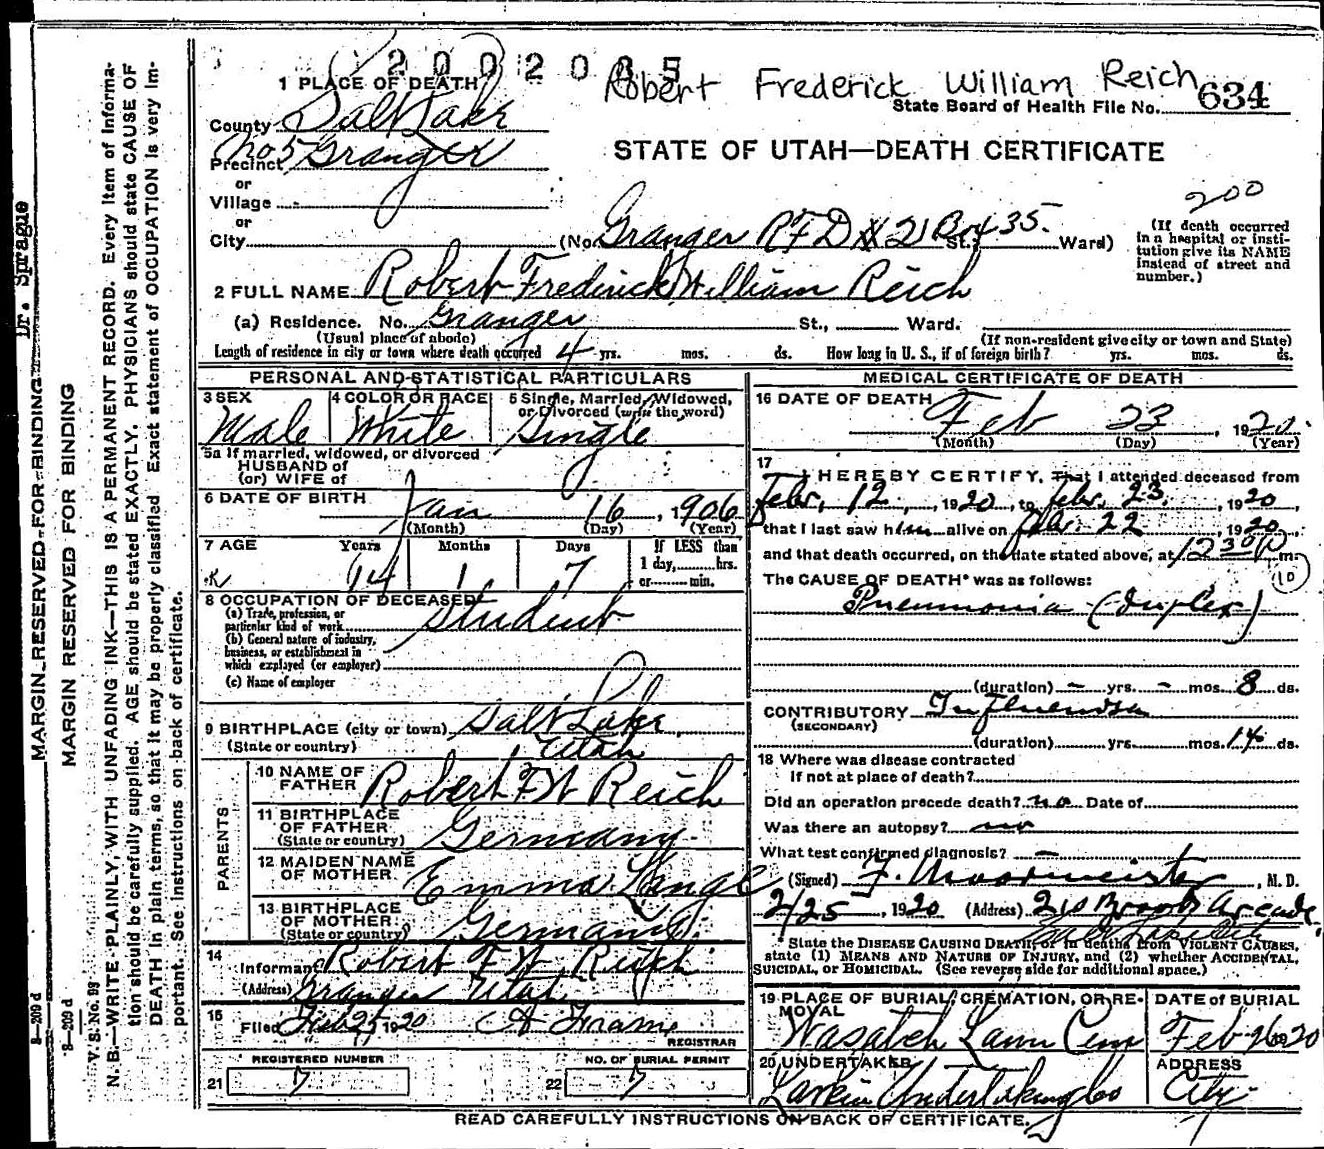 2002085
Robert Frederick William Reich
1 PLACE OF DEATH
State Board of Health File No. 634
County Salt Lake
Precinct No 5 Granger
STATE OF UTAH—DEATH CERTIFICATE
or
Village
or
200
City (No. Granger RFD # 2 Box 435. St.; Ward)
(If death occurred in a hospital or insti-
tution give its NAME
instead of street and
number.)
2 FULL NAME Robert Frederick William Reich
(a) Residence. No. Granger St., Ward.
(Usual place of abode) (If non-resident give city or town and State)
Length of residence in city or town where death occurred 4 yrs. mos. ds. How long in U. S., if of foreign birth? yrs. mos. ds.
PERSONAL AND STATISTICAL PARTICULARS
3 SEX Male
4 COLOR OR RACE White
5 Single, Married, Widowed,
or Divorced (write the word)
Single
5a If married, widowed, or divorced
HUSBAND of
(or) WIFE of
6 DATE OF BIRTH Jan 16, 1906
(Month) (Day) (Year)
7 AGE Years Months Days If LESS than
1 day, hrs.
14 1 7 or min.
8 OCCUPATION OF DECEASED
(a) Trade, profession, or
particular kind of work Student
(b) General nature of industry,
business, or establishment in
which employed (or employer)
(c) Name of employer
9 BIRTHPLACE (city or town) Salt Lake
(State or country) Utah
PARENTS
10 NAME OF
FATHER Robert F W Reich
11 BIRTHPLACE
OF FATHER Germany
(State or country)
12 MAIDEN NAME
OF MOTHER Emma Lange
13 BIRTHPLACE
OF MOTHER Germany
(State or country)
14
Informant Robert F W Reich
(Address) Granger Utah
15
Filed Feb 25, 1920
REGISTRAR
REGISTERED NUMBER
NO. OF BURIAL PERMIT
21 7
22 7
MEDICAL CERTIFICATE OF DEATH
16 DATE OF DEATH Feb 23, 1920
(Month) (Day) (Year)
17
I HEREBY CERTIFY, That I attended deceased from
Febr. 12, 1920, to febr. 23, 1920,
that I last saw him alive on febr. 22, 1920,
and that death occurred, on the date stated above, at 12 30 P m.
The CAUSE OF DEATH* was as follows:
10
Pneumonia (duplex)
(duration) – yrs. – mos. 8 ds.
CONTRIBUTORY Influendsa
(SECONDARY)
(duration) yrs. mos. 14 ds.
18 Where was disease contracted
If not at place of death?
Did an operation precede death? no Date of
Was there an autopsy? no
What test confirmed diagnosis? —
(Signed) F. Moormeister, M. D.
2/25, 1920 (Address) 210 Brooks Arcade
Salt Lake City
* State the DISEASE CAUSING DEATH, or in deaths from VIOLENT CAUSES,
state (1) MEANS AND NATURE OF INJURY, and (2) whether ACCIDENTAL,
SUICIDAL, or HOMICIDAL. (See reverse side for additional space.)
19 PLACE OF BURIAL, CREMATION, OR RE-
MOVAL
Wasatch Lawn Cem
DATE of BURIAL
Feb 26 1920
20 UNDERTAKER
Larkin Undertaking Co
ADDRESS
City
READ CAREFULLY INSTRUCTIONS ON BACK OF CERTIFICATE.
Dr. Sprague
MARGIN RESERVED FOR BINDING
8—209 d
MARGIN RESERVED FOR BINDING
8—209 d
V. S. No. 98
N. B.—WRITE PLAINLY, WITH UNFADING INK—THIS IS A PERMANENT RECORD. Every item of informa-
tion should be carefully supplied. AGE should be stated EXACTLY. PHYSICIANS should state CAUSE OF
DEATH in plain terms, so that it may be properly classified. Exact statement of OCCUPATION is very im-
portant. See instructions on back of certificate.